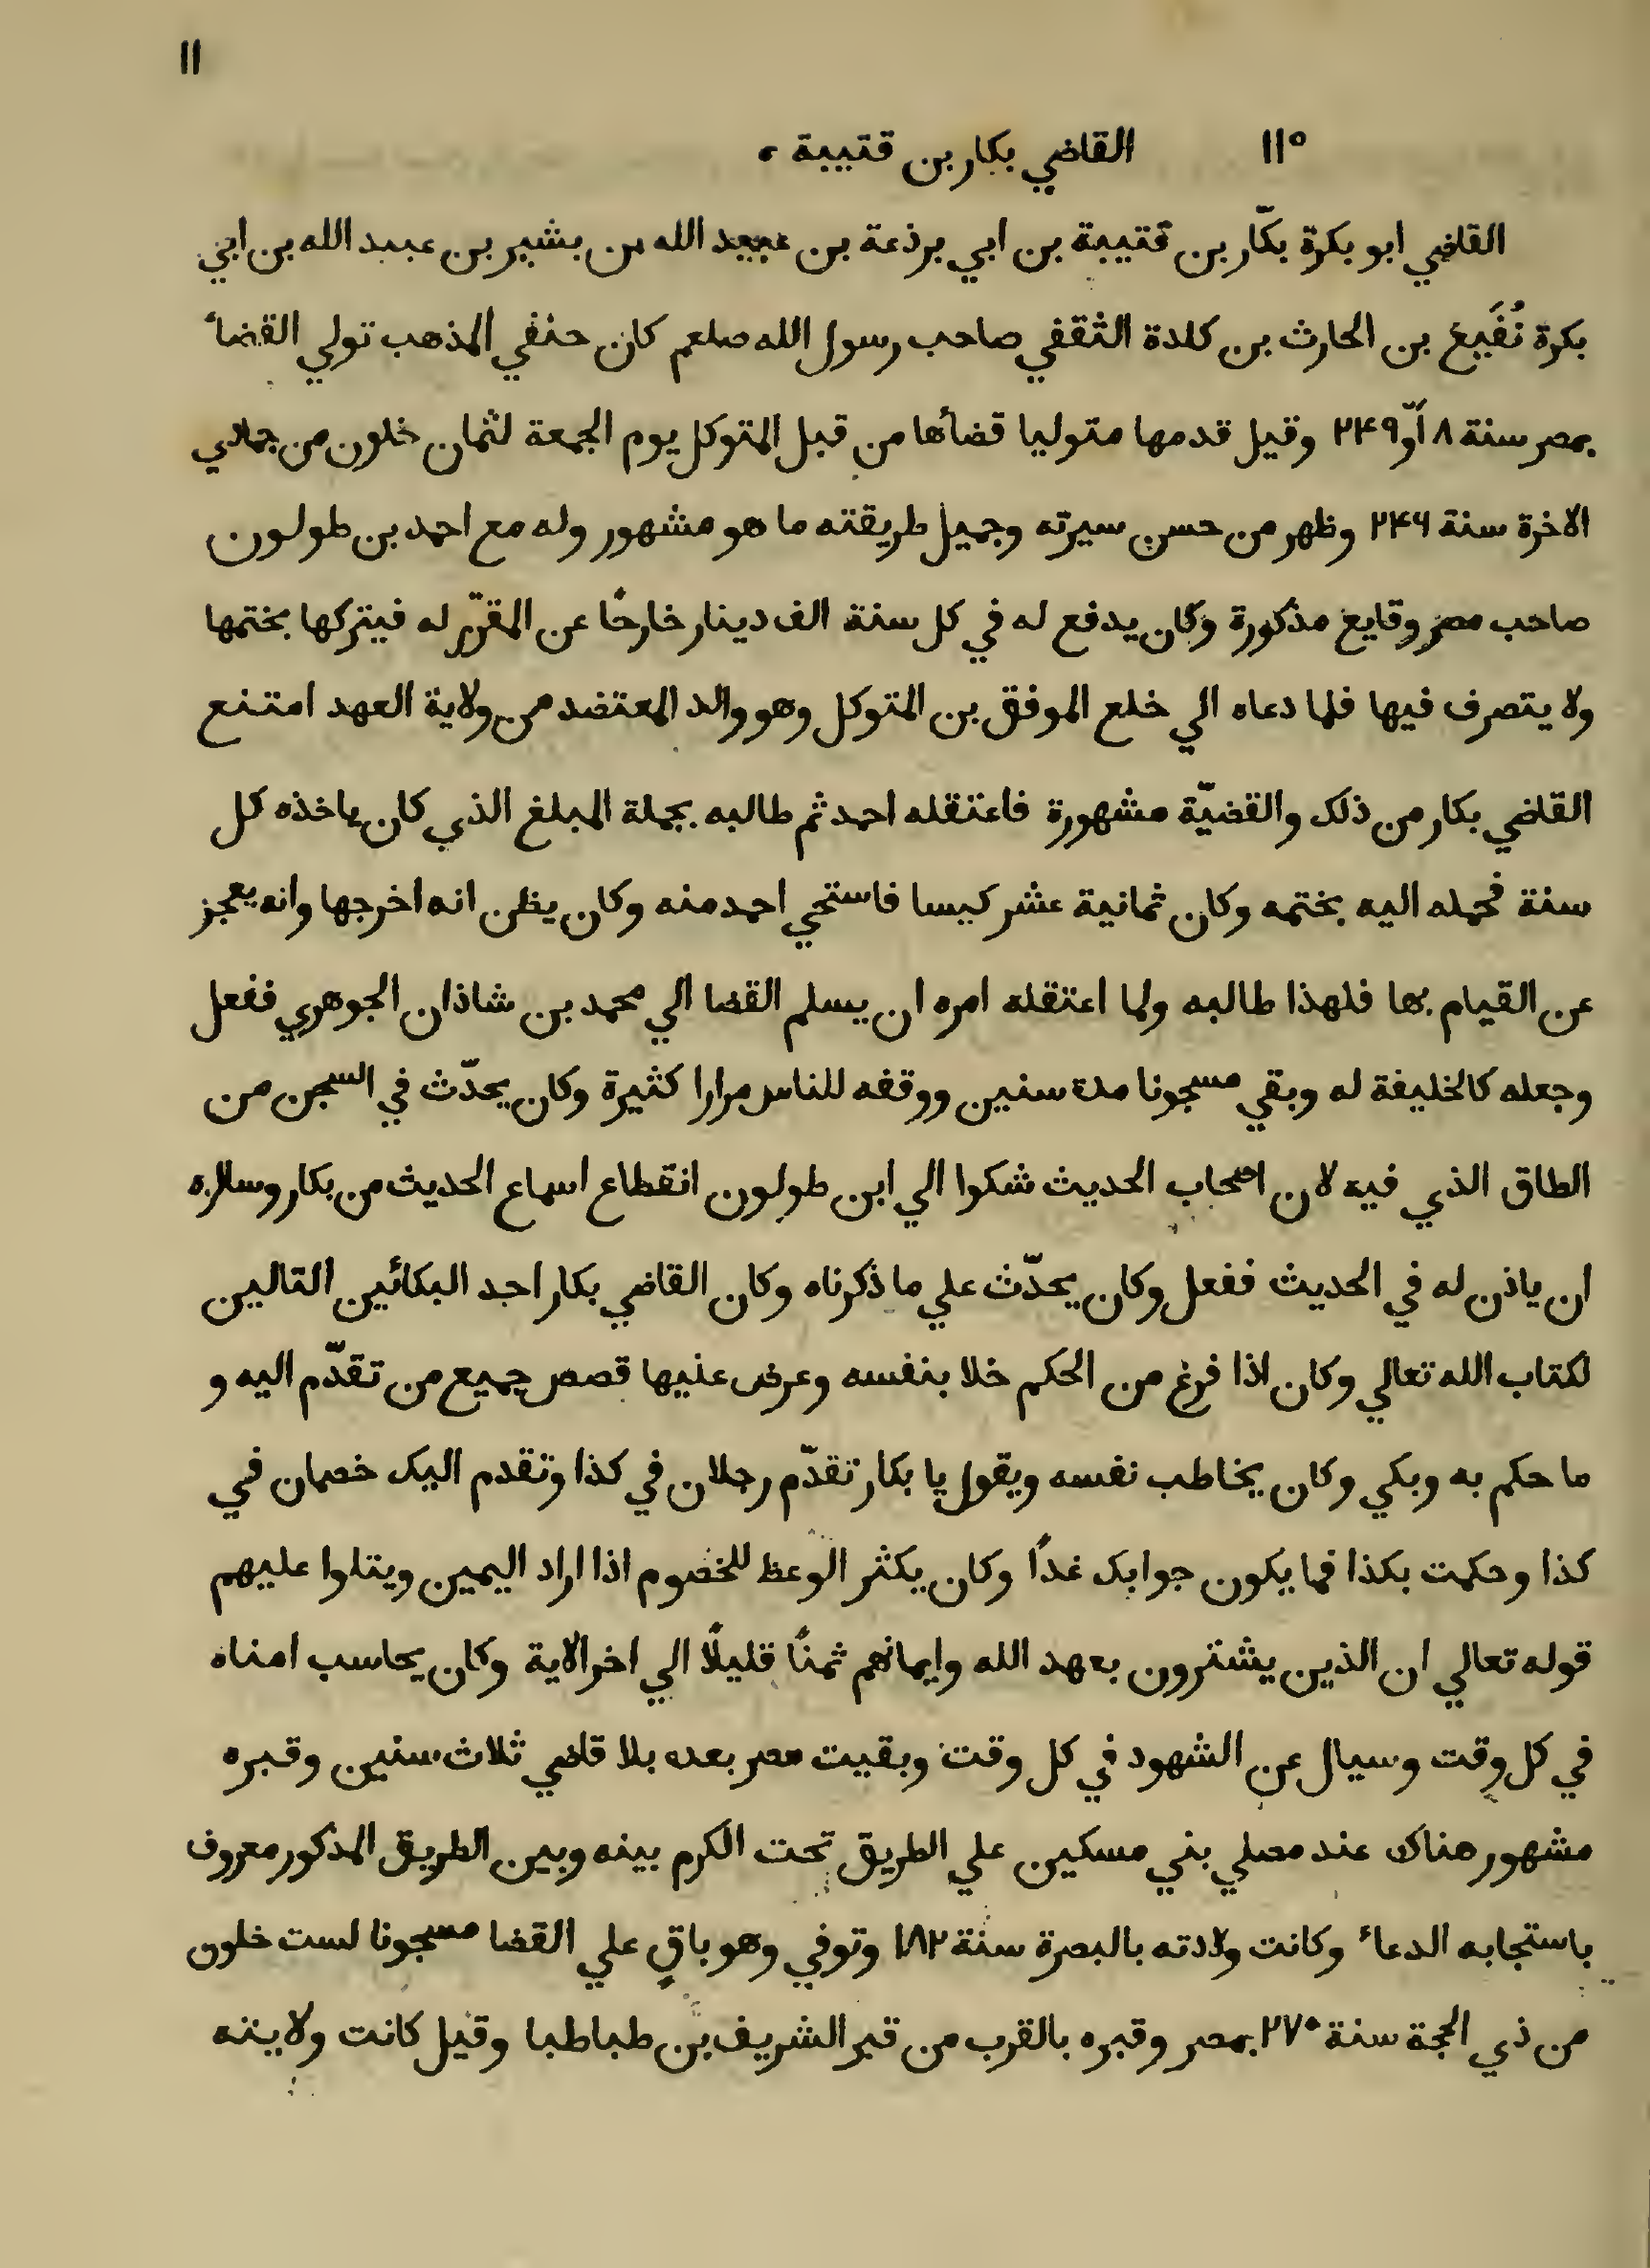 ١١
١١٥ القاضي بكار بن قتيبة ،
القاضي ابو بكرة بكّار بن قتيبة بن ابي برذعة بن عبيد الله بن بشير بن عبيد الله بن ابي
بكرة نُفَيع بن الحارث بن كلدة الثقفي صاحب رسول الله صلعم كان حنفي المذهب تولي القضاء
بمصر سنة ٨ أو ٢۴٩ وقيل قدمها متوليا قضأها من قبل المتوكل يوم الجمعة لثمان خلون من جمادي
الاخرة سنة ٢۴۶ وظهر من حسن سيرته وجميل طريقته ما هو مشهور وله مع احمد بن طولون
صاحب مصر وقايع مذكورة وكان يدفع له في كل سنة الف دينار خارجًا عن المقرّر له فيتركها بختمها
ولا يتصرف فيها فلما دعاه الي خلع الموفق بن المتوكل وهو والد المعتضد من ولاية العهد امتنع
القاضي بكار من ذلك والقضيّة مشهورة فاعتقله احمد ثم طالبه بجملة المبلغ الذي كان ياخذه كل
سنة فحمله اليه بختمه وكان ثمانية عشر كيسا فاستحي احمد منه وكان يظن انه اخرجها وانه يعجز
عن القيام بها فلهذا طالبه ولما اعتقله امره ان يسلم القضا الي محمد بن شاذان الجوهري ففعل
وجعله كالخليفة له وبقي مسجونا مدة سنين ووقفه للناس مرارا كثيرة وكان يحدّث في السجن من
الطاق الذي فيه لان اصحاب الحديث شكوا الي ابن طولون انقطاع اسماع الحديث من بكار وسالوه
ان ياذن له في الحديث ففعل وكان يحدّث علي ما ذكرناه وكان القاضي بكار اجد البكائين التالين
لكتاب الله تعالي وكان اذا فرغ من الحكم خلا بنفسه وعرض عليها قصص جميع من تقدّم اليه و
ما حكم به وبكي وكان يخاطب نفسه ويقول يا بكار تقدّم رجلان في كذا وتقدم اليك خصمان في
كذا وحكمت بكذا فما يكون جوابك غدًا وكان يكثر الوعظ للخصوم اذا اراد اليمين ويتلوا عليهم
قوله تعالي ان الذين يشترون بعهد الله وايمانهم ثمنًا قليلًا الي اخر الاية وكان يحاسب امناه
في كل وقت وسيال عن الشهود في كل وقت وبقيت مصر بعده بلا قاضي ثلاث سنين وقبره
مشهور هناك عند مصلي بني مسكين علي الطريق تحت الكرم بينه وبين الطريق المذكور معروف
باستجابه الدعاء وكانت ولادته بالبصرة سنة ١٨٢ وتوفي وهو باقٍ علي القضا مسجونا لست خلون
من ذي الحجة سنة ٢٧٠ بمصر وقبره بالقرب من قبر الشريف بن طباطبا وقيل كانت ولايته